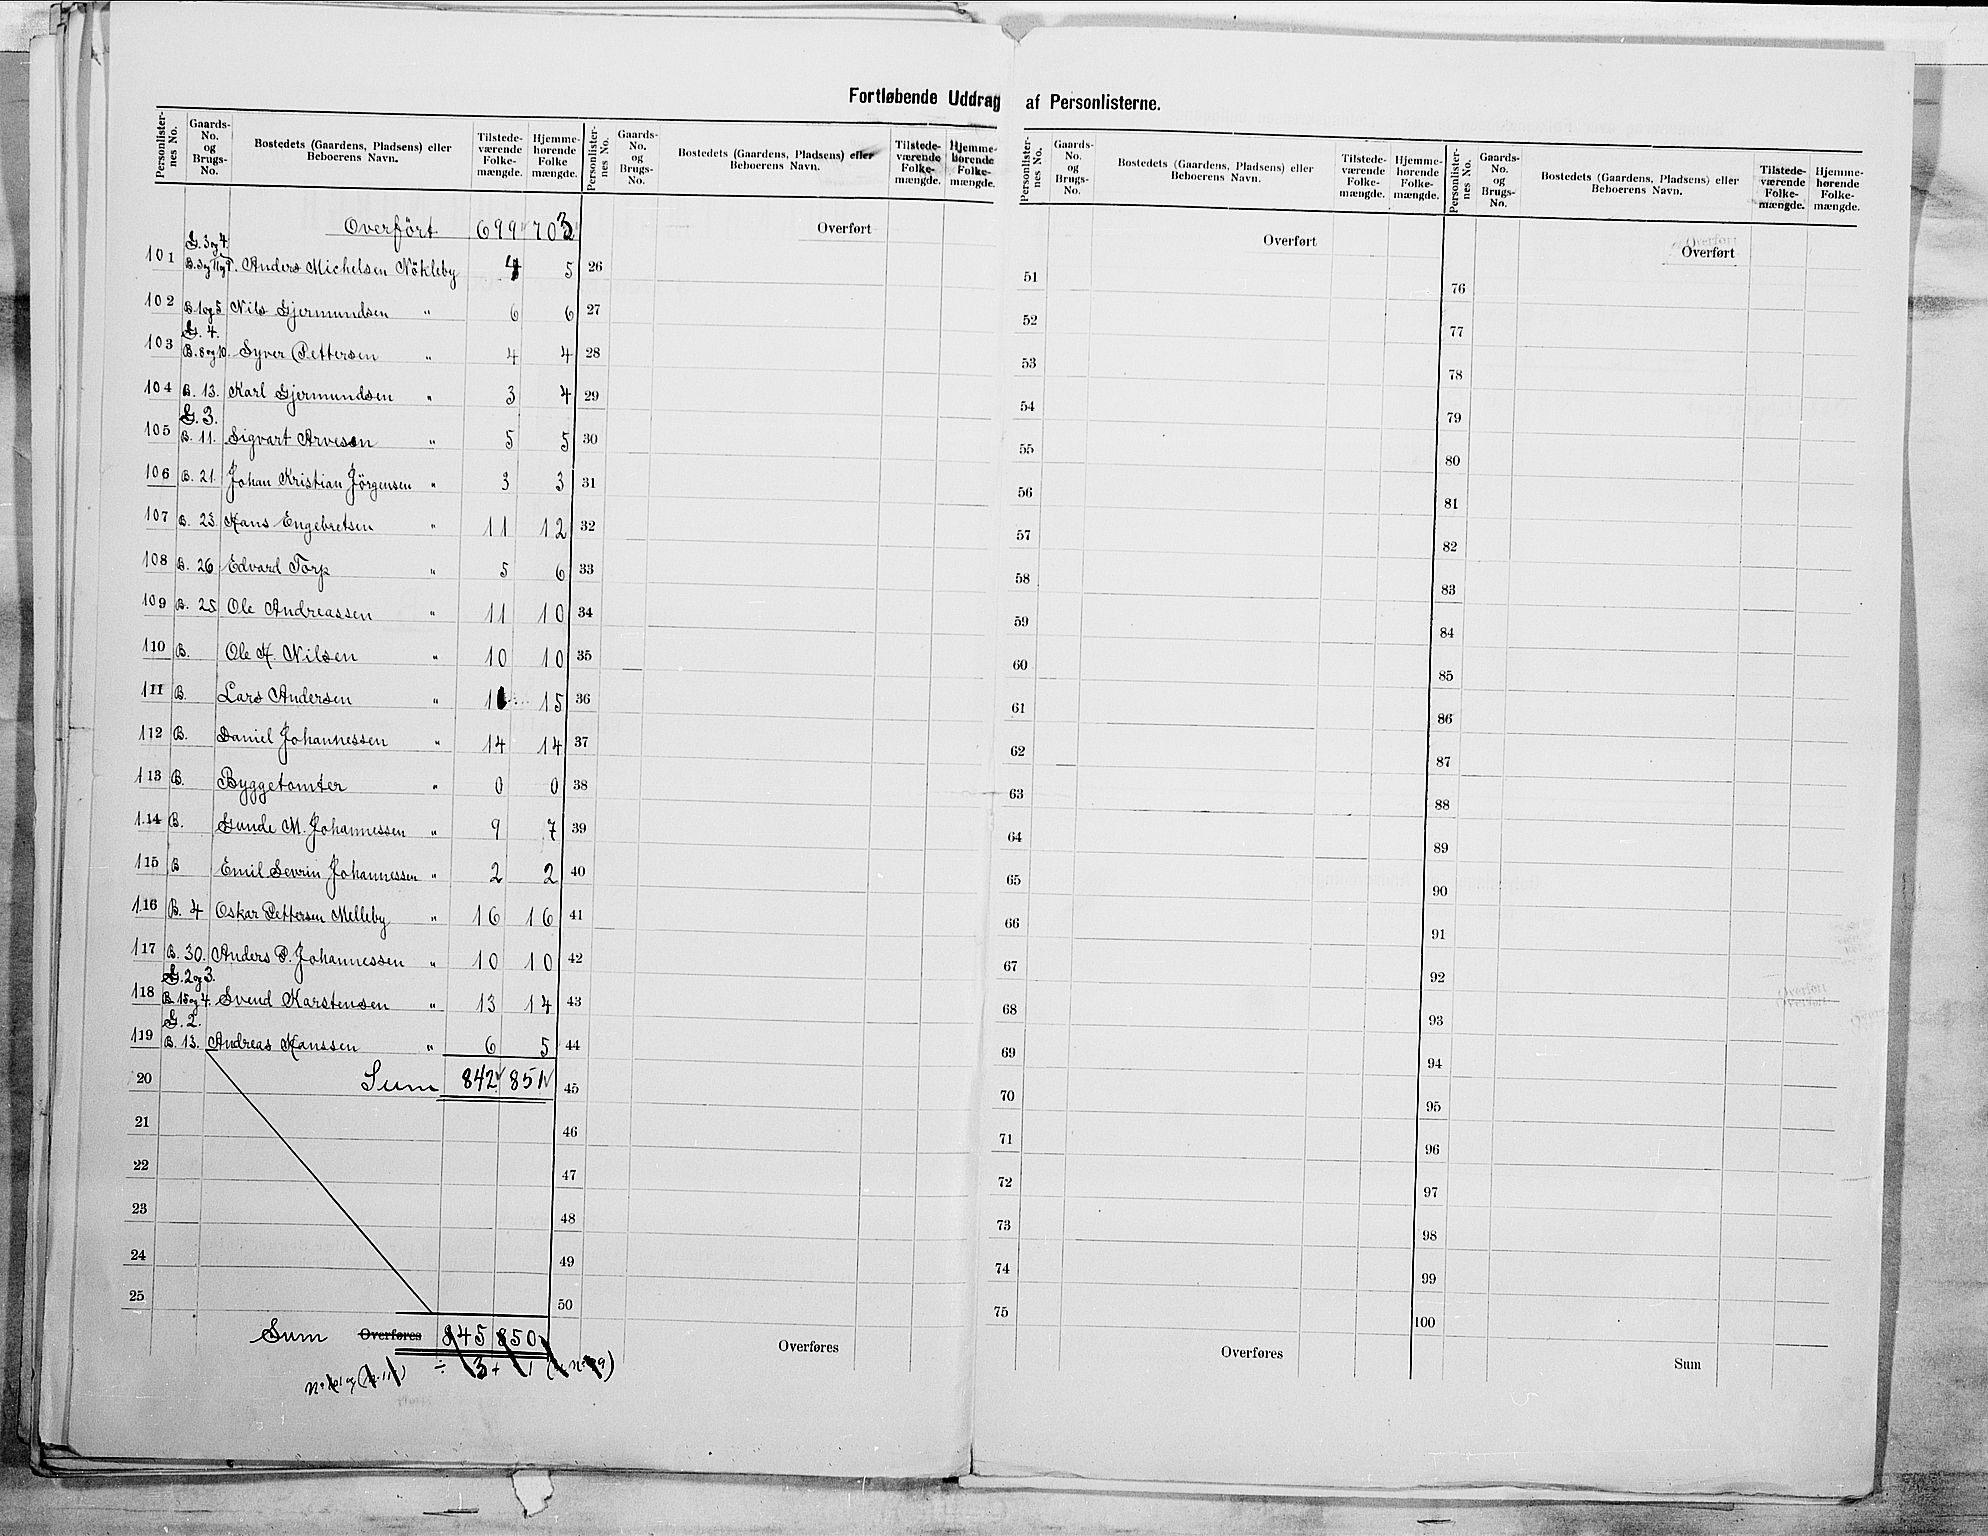 Fortløbende Uddrag af Personlisterne.
Personlister-nes No. Gaards-No. og Brugs-No. Bostedets (Gaardens, Pladsens) eller Beboerens Navn. Tilstede-værende Folke-mængde. Hjemme-hørende Folke mængde.
Overført 699 703
G. 3 og 4.
101 Anders Michelsen Nökleby 4 5
102 B. 1 og 5 Nils Gjermundsen " 6 6
G. 4.
103 B. 8 og 10. Syver Pettersen " 4 4
104 B. 13. Karl Gjermundsen " 3 4
G. 3.
105 B. 11. Sigvart Arvesen " 5 5
106 B. 21. Johan Kristian Jörgensen " 3 3
107 B. 23. Hans Engebretsen " 11 12
108 B. 26 Edvard Torp " 5 6
109 B. 25 Ole Andreassen " 11 10
110 B. Ole H. Nilsen " 10 10
111 B. Lars Andersen " 15
112 B. Daniel Johannessen " 14 14
113 B. Byggetomter " 0 0
114 B. Gunde M. Johannessen " 9 7
115 B Emil Sevrin Johannessen " 2 2
116 B. 4 Oskar Pettersen Melleby " 16 16
117 B. 30. Anders P. Johannessen " 10 10
G. 2 og 3.
118 B. 15 og 4. Svend Karstensen " 13 14
G. 2.
119 B. 13. Andreas Hanssen " 6 5
20 Sum 842 851
21
22
23
24
25
Sum Overføres 845 850
÷ 3 +
Personlister-nes No. Gaards-No. og Brugs-No. Bostedets (Gaardens, Pladsens) eller Beboerens Navn. Tilstede-værende Folke-mængde. Hjemme-hørende Folke-mængde.
Overført
26
27
28
29
30
31
32
33
34
35
36
37
38
39
40
41
42
43
44
45
46
47
48
49
50
Overføres
Personlister-nes No. Gaards-No. og Brugs-No. Bostedets (Gaardens, Pladsens) eller Beboerens Navn. Tilstede-værende Folke-mængde. Hjemme-hørende Folke-mængde.
Overført
51
52
53
54
55
56
57
58
59
60
61
62
63
64
65
66
67
68
69
70
71
72
73
74
75
Overføres
Personlister-nes No. Gaards-No. og Brugs-No. Bostedets (Gaardens, Pladsens) eller Beboerens Navn. Tilstede-værende Folke-mængde. Hjemme-hørende Folke-mængde.
Overført
76
77
78
79
80
81
82
83
84
85
86
87
88
89
90
91
92
93
94
95
96
97
98
99
100
Sum